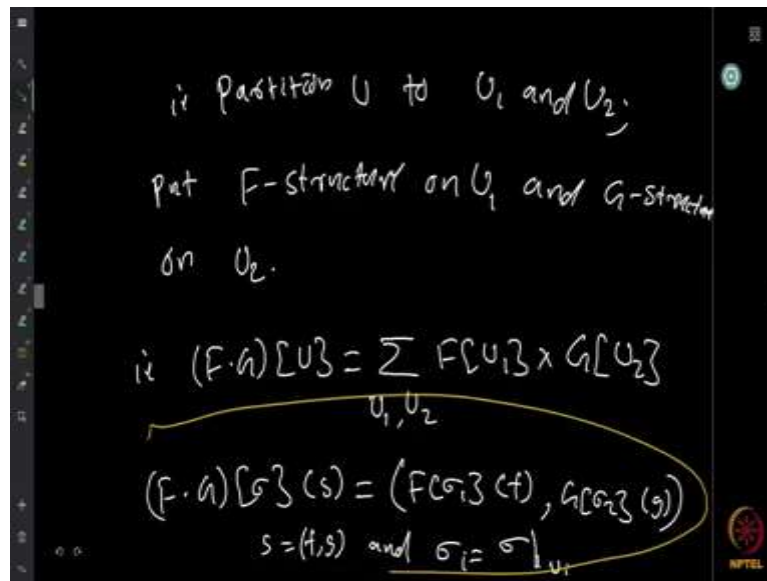 ie Partition U to U₁ and U₂;
Put F-structure on U₁ and G-structure
on U₂.
ie (F·G)[U] = ∑ F[U₁] × G[U₂]
U₁, U₂
(F·G)[σ](s) = (F[σ₁](f), G[σ₂](g))
s = (f, g) and σᵢ = σ|ᵤᵢ
NPTEL